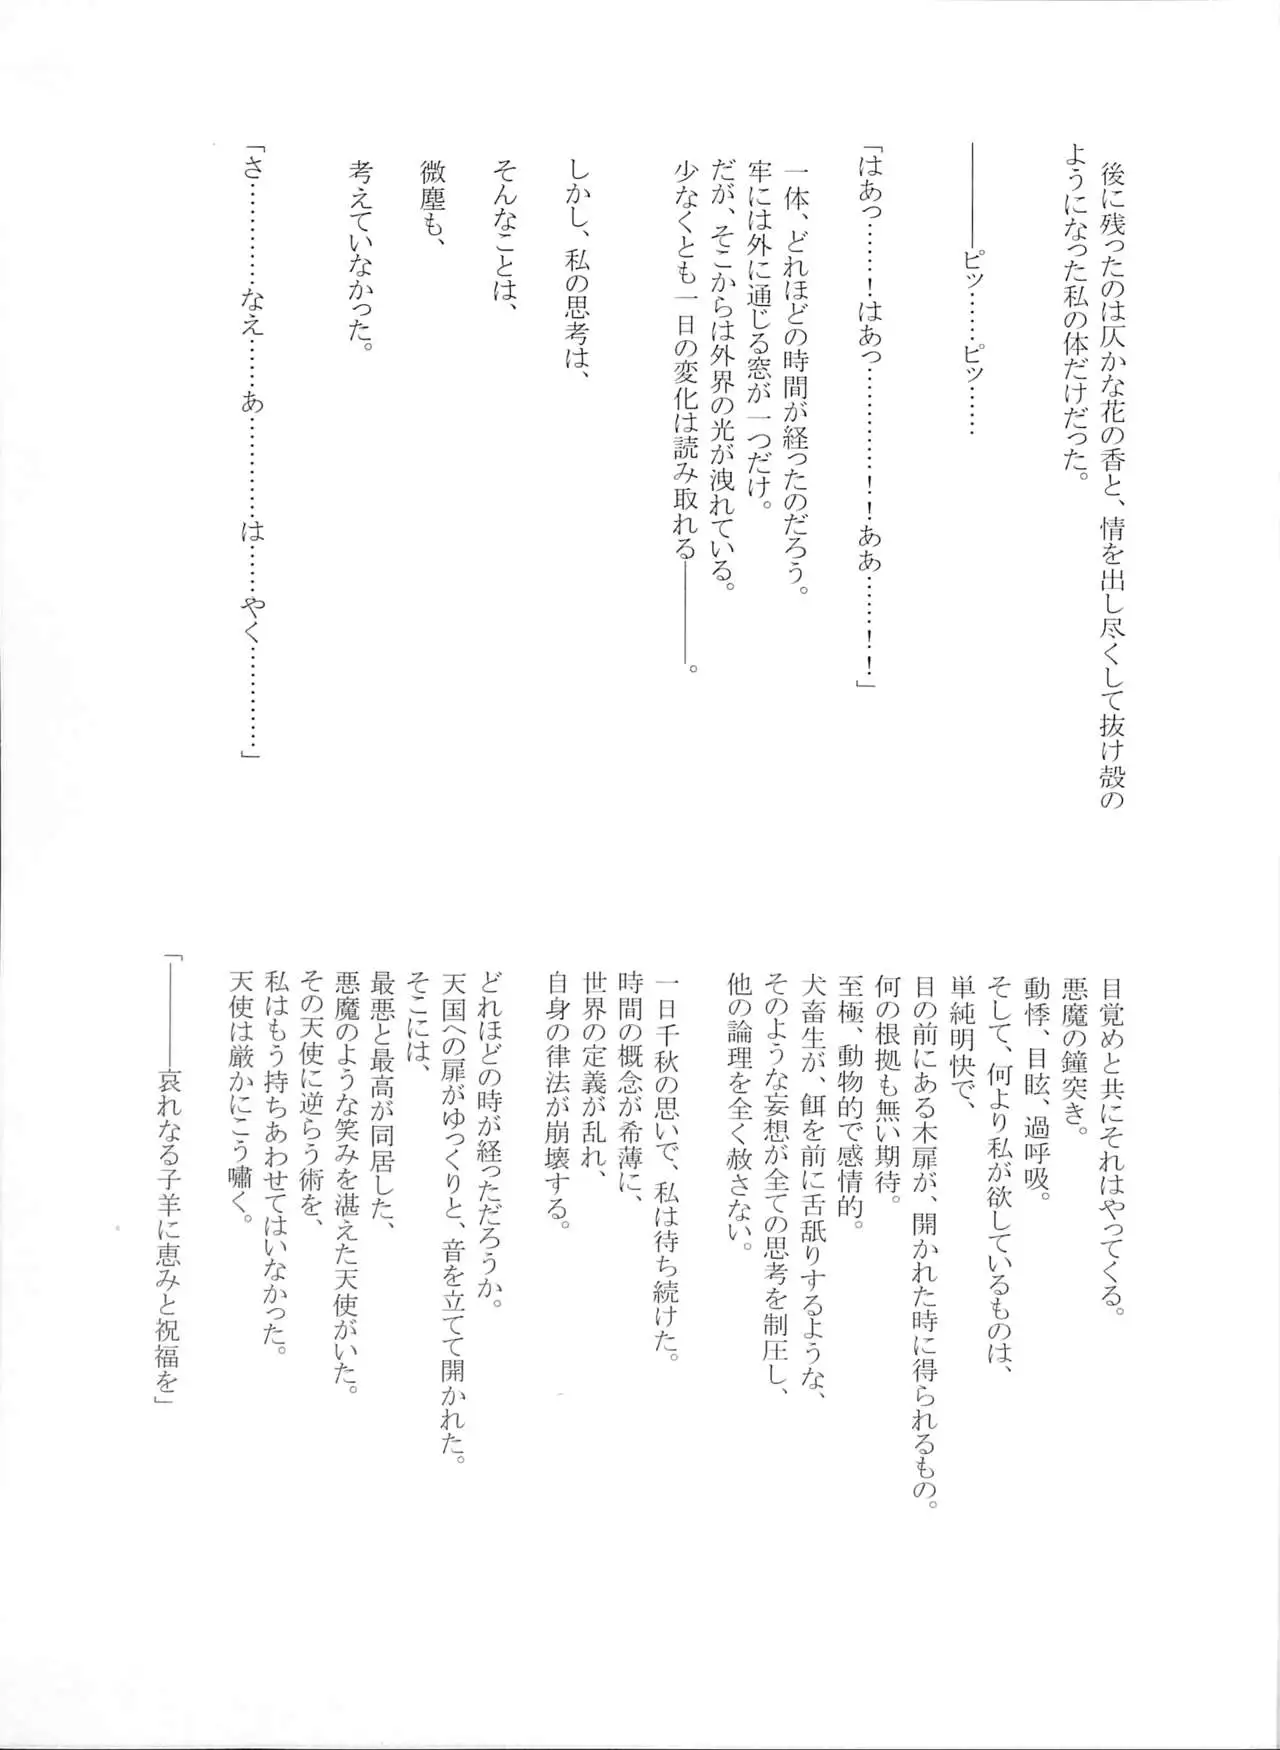 後に残ったのは仄かな花の香と、情を出し尽くして抜け殻の
ようになった私の体だけだった。
―――ピッ……ピッ……
「はあっ……！はあっ…………！！ああ……！！」
一体、どれほどの時間が経ったのだろう。
牢には外に通じる窓が一つだけ。
だが、そこからは外界の光が洩れている。
少なくとも一日の変化は読み取れる―――。
しかし、私の思考は、
そんなことは、
微塵も、
考えていなかった。
「さ…………なえ……あ…………は……やく…………」
目覚めと共にそれはやってくる。
悪魔の鐘突き。
動悸、目眩、過呼吸。
そして、何より私が欲しているものは、
単純明快で、
目の前にある木扉が、開かれた時に得られるもの。
何の根拠も無い期待。
至極、動物的で感情的。
犬畜生が、餌を前に舌舐りするような、
そのような妄想が全ての思考を制圧し、
他の論理を全く赦さない。
一日千秋の思いで、私は待ち続けた。
時間の概念が希薄に、
世界の定義が乱れ、
自身の律法が崩壊する。
どれほどの時が経っただろうか。
天国への扉がゆっくりと、音を立てて開かれた。
そこには、
最悪と最高が同居した、
悪魔のような笑みを湛えた天使がいた。
その天使に逆らう術を、
私はもう持ちあわせてはいなかった。
天使は厳かにこう嘯く。
「―――哀れなる子羊に恵みと祝福を」